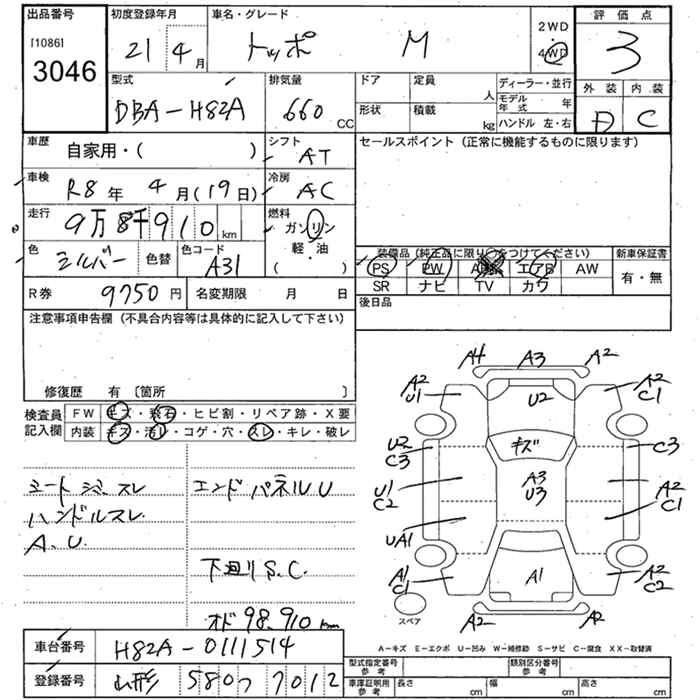 出品番号 初度登録年月 車名・グレード 2WD 評価点
[1086] 21 4月 トッポ M 4WD 3
3046
型式 排気量 ドア 定員 人 ディーラー・並行 外装 内装
DBA-H82A 660 CC 形状 積載 kg モデル年式 年 D C
ハンドル 左・右
車歴 自家用・( ) シフト AT セールスポイント(正常に機能するものに限ります)
車検 R8年 4月(19日) 冷房 AC
走行 9万8千910 km 燃料 ガソリン
軽・油
( )
色 シルバー 色替 色コード A31 装備品(純正品に限り○をつけてください) 新車保証書
PS PW エアB AW 有・無
SR ナビ TV カワ
R券 9750円 名変期限 月 日 後日品
注意事項申告欄(不具合内容等は具体的に記入して下さい)
修復歴 有 〔箇所 〕
検査員 FW キズ・飛石・ヒビ割・リペア跡・X要
記入欄 内装 キズ・汚レ・コゲ・穴・スレ・キレ・破レ
シートシミスレ エンドパネルU
ハンドルスレ
A.U.
下廻りS.C.
オド 98,910 km
A4 A3 A2
A2 U1 U2 A2 C1
U2 C3 キズ C3
U1 C2 A3 U3 A2 C1
UA1
A1 C1 A1 A2 C2
スペア A2 A2
A-キズ E-エクボ U-凹み W-補修跡 S-サビ C-腐食 XX-取替済
車台番号 H82A-0111514
登録番号 山形 580 つ 7012
型式指定番号 参考 類別区分番号 参考
車庫証明用 参考 長さ cm 幅 cm 高さ cm